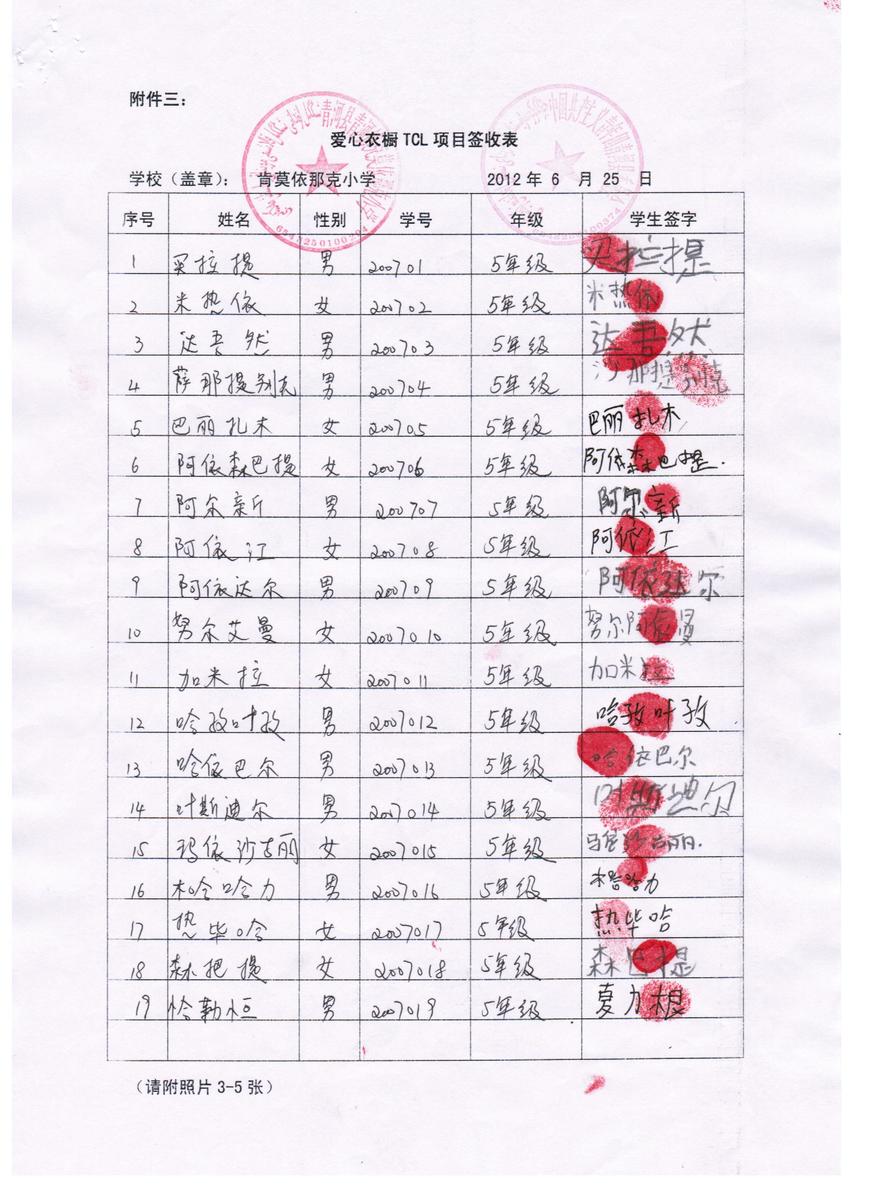 附件三：
爱心衣橱 TCL 项目签收表
学校（盖章）： 肯莫依那克小学 2012 年 6 月 25 日
序号 姓名 性别 学号 年级 学生签字
1 买拉提 男 200701 5年级 买拉提
2 米热依 女 200702 5年级 米热依
3 达吾然 男 200703 5年级 达吾然
4 薛那提别克 男 200704 5年级 沙那提别克
5 巴丽扎木 女 200705 5年级 巴丽扎木
6 阿依森巴提 女 200706 5年级 阿依森巴提.
7 阿尔新 男 200707 5年级 阿尔新
8 阿依江 女 200708 5年级 阿依江
9 阿依达尔 男 200709 5年级 阿依达尔
10 努尔艾曼 女 2007010 5年级 努尔阿依曼
11 加米拉 女 2007011 5年级 加米拉
12 哈孜叶孜 男 2007012 5年级 哈孜叶孜
13 哈依巴尔 男 2007013 5年级 哈依巴尔
14 叶斯迪尔 男 2007014 5年级 叶斯迪尔
15 玛依沙古丽 女 2007015 5年级 沙古丽.
16 木哈哈力 男 2007016 5年级 木哈哈力
17 热毕哈 女 2007017 5年级 热毕哈
18 森把提 女 2007018 5年级 森巴提
19 恰勒恒 男 2007019 5年级 夏力根
（请附照片 3-5 张）
6543250100204